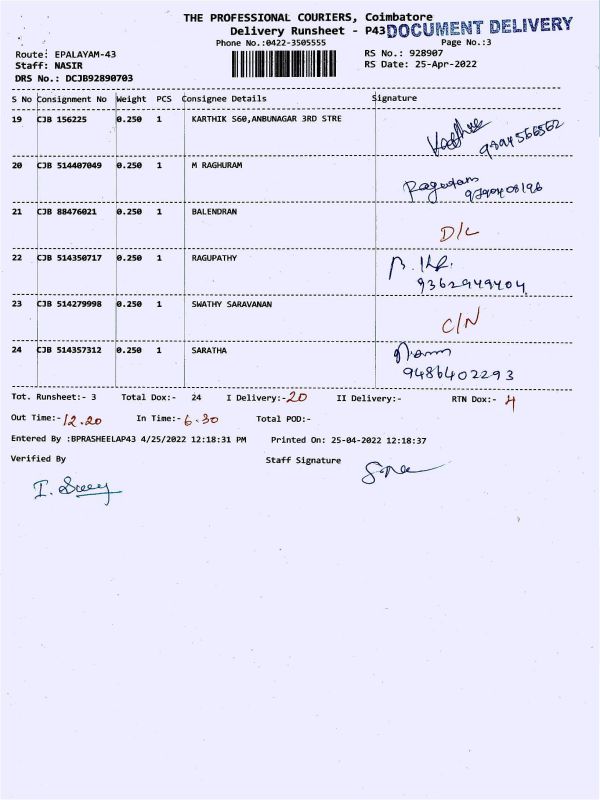 THE PROFESSIONAL COURIERS, Coimbatore
Delivery Runsheet - P43 DOCUMENT DELIVERY
Phone No.:0422-3505555 Page No.:3
Route: EPALAYAM-43 RS No.: 928907
Staff: NASIR RS Date: 25-Apr-2022
DRS No.: DCJB92890703
S No Consignment No Weight PCS Consignee Details Signature
19 CJB 156225 0.250 1 KARTHIK S60,ANBUNAGAR 3RD STRE
20 CJB 514407049 0.250 1 M RAGHURAM
21 CJB 88476021 0.250 1 BALENDRAN
D/L
22 CJB 514350717 0.250 1 RAGUPATHY
9362949404
23 CJB 514279998 0.250 1 SWATHY SARAVANAN
C/N
24 CJB 514357312 0.250 1 SARATHA
9486402293
Tot. Runsheet:- 3 Total Dox:- 24 I Delivery:-20 II Delivery:- RTN Dox:- 4
Out Time:-12.20 In Time:-6.30 Total POD:-
Entered By :BPRASHEELAP43 4/25/2022 12:18:31 PM Printed On: 25-04-2022 12:18:37
Verified By Staff Signature